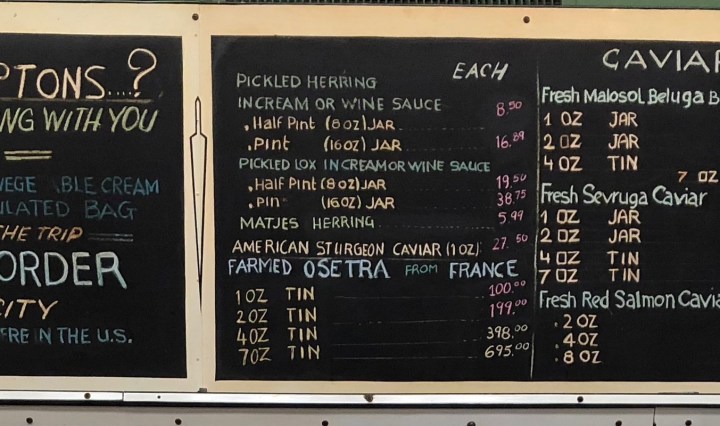 PTONS....?
NG WITH YOU
VEGE BLE CREAM
ULATED BAG
THE TRIP
ORDER
CITY
RE IN THE U.S.
EACH
PICKLED HERRING
IN CREAM OR WINE SAUCE
. Half Pint (8 OZ) JAR 8.50
. Pint (16 OZ) JAR 16.89
PICKLED LOX IN CREAM OR WINE SAUCE
. Half Pint (8 OZ) JAR 19.50
. Pin (16 OZ) JAR 38.75
MATJES HERRING 5.99
AMERICAN STURGEON CAVIAR (1 OZ) 27.50
FARMED OSETRA FROM FRANCE
1 OZ TIN 100.00
2 OZ TIN 199.00
4 OZ TIN 398.00
7 OZ TIN 695.00
CAVIAR
Fresh Malosol Beluga B
1 OZ JAR
2 OZ JAR
4 OZ TIN
7 OZ
Fresh Sevruga Caviar
1 OZ JAR
2 OZ JAR
4 OZ TIN
7 OZ TIN
Fresh Red Salmon Cavia
. 2 OZ
. 4 OZ
. 8 OZ